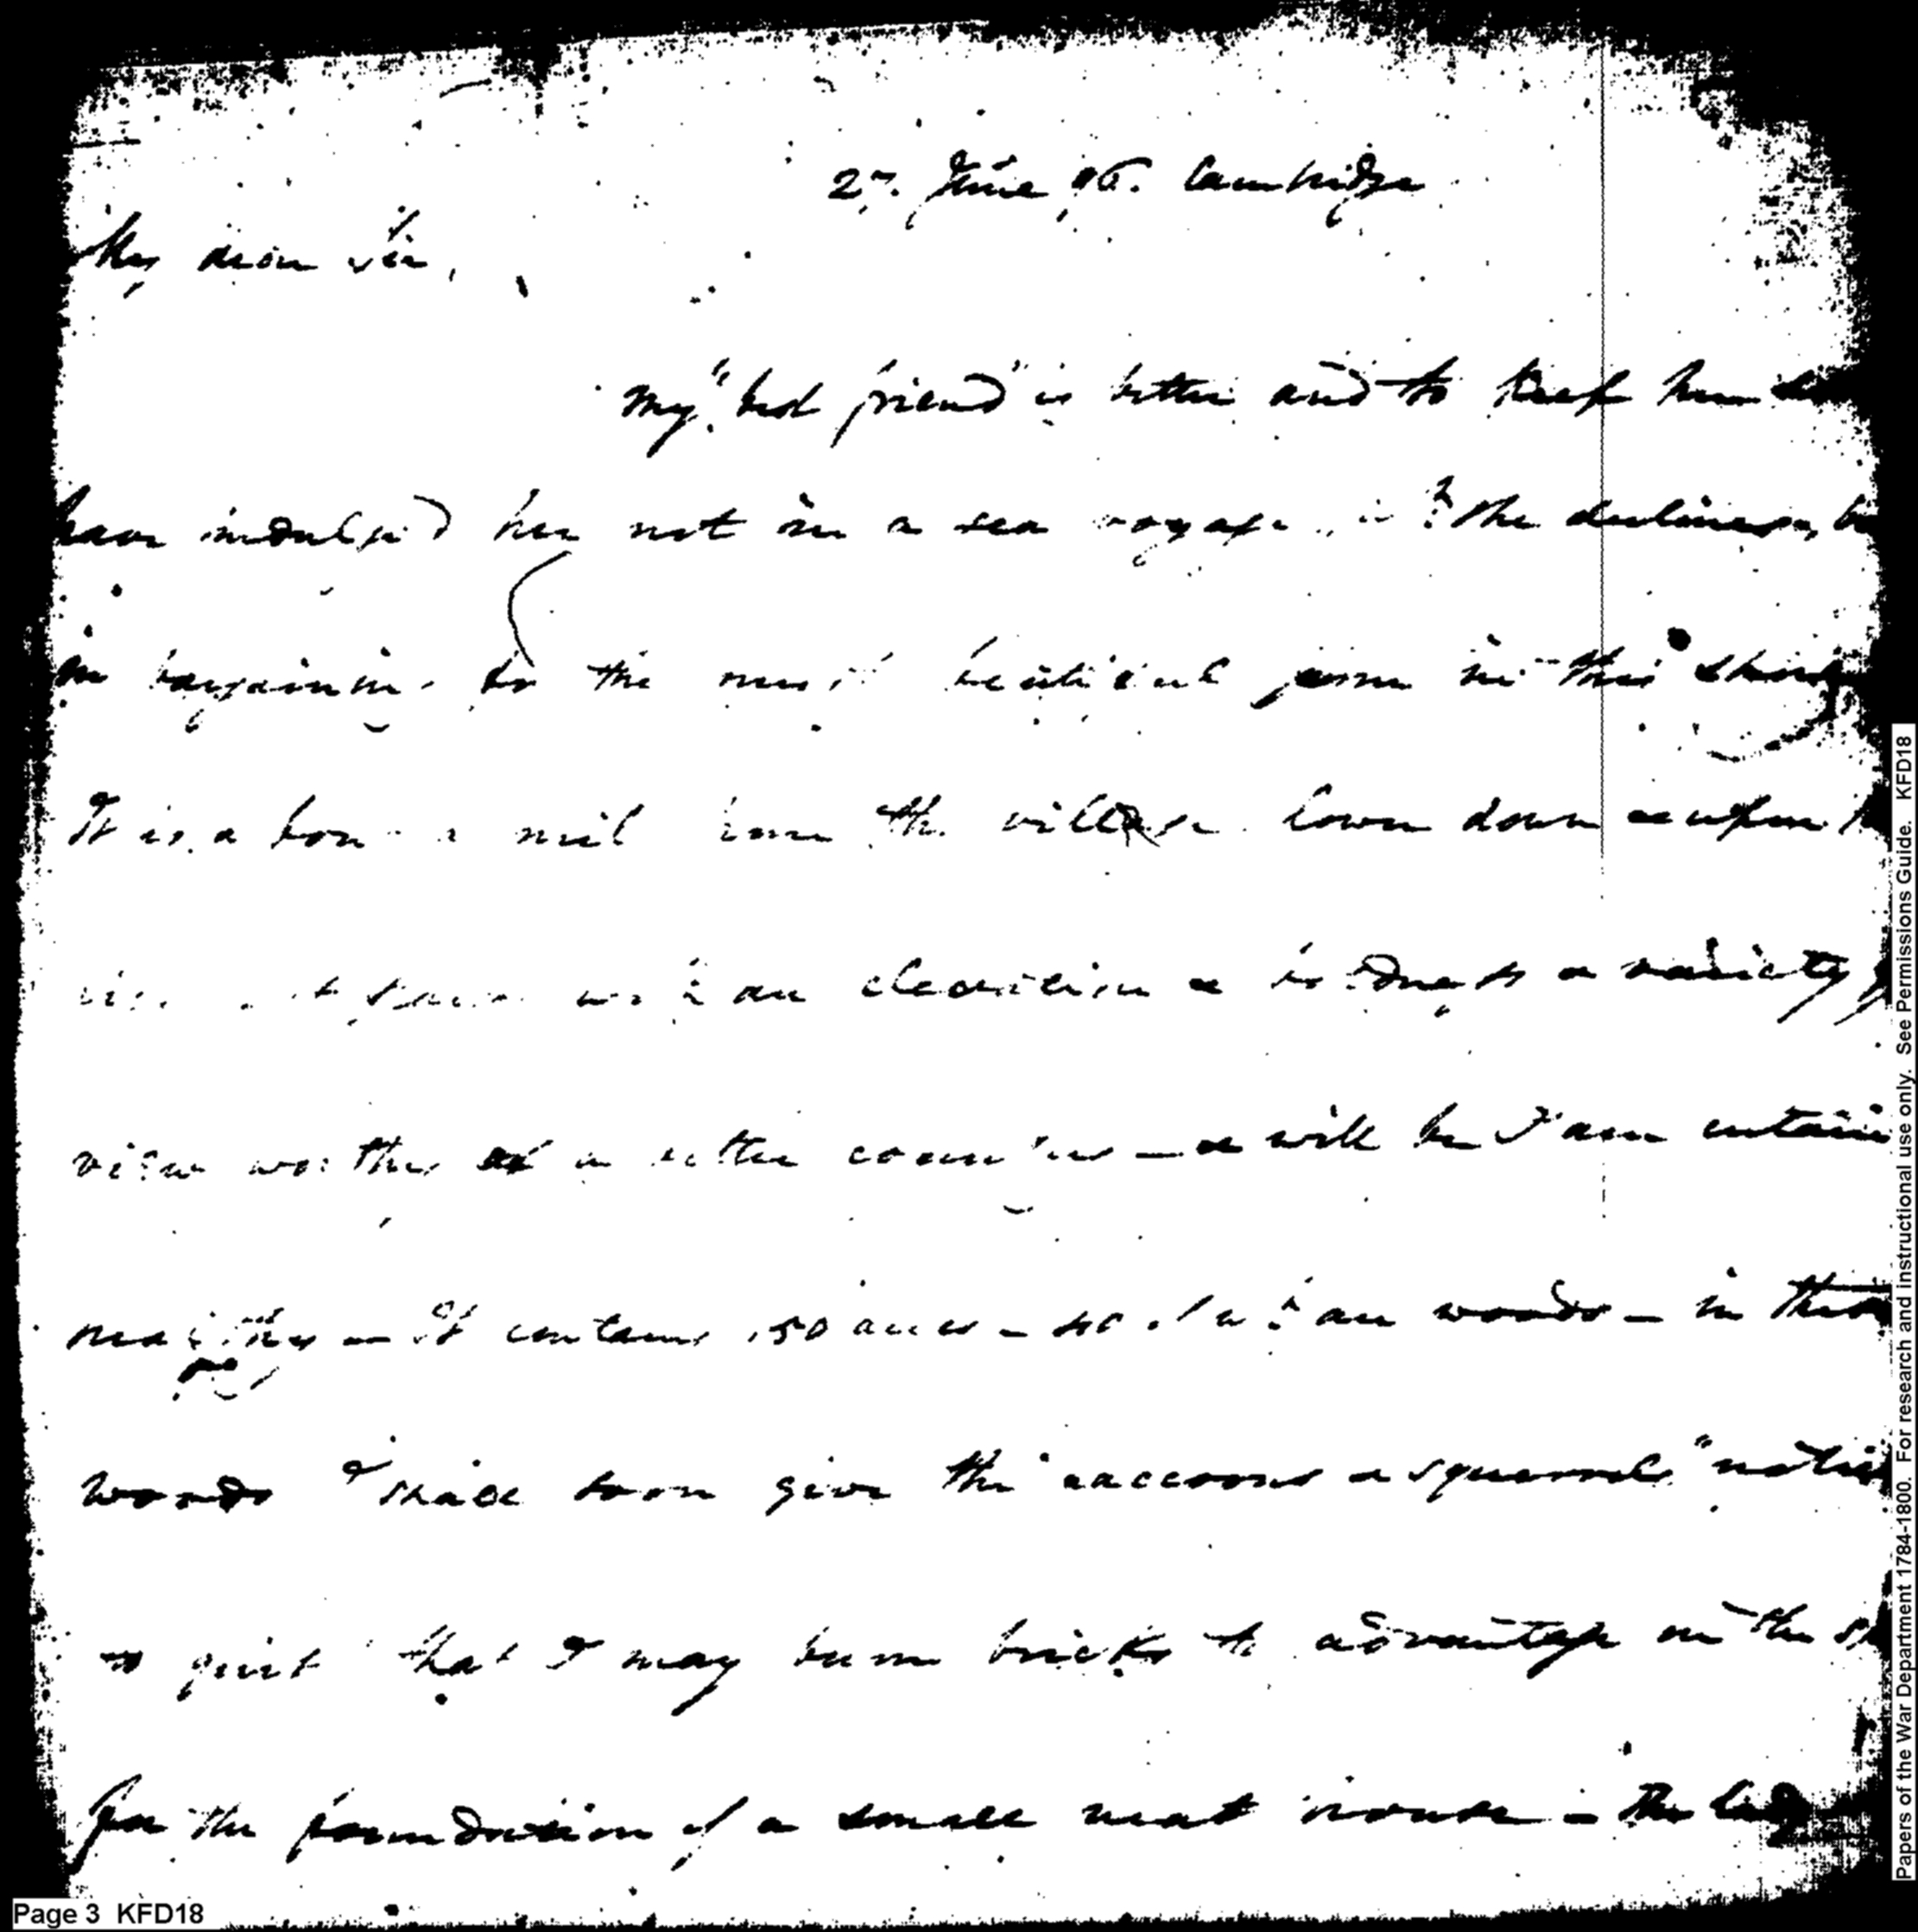 27. June 96. Cambridge
My dear Sir,
My "best friend" is better and to keep her so
have indulged her not in a sea voyage, the declines, but
in bargaining for the most beautiful farm in this
It is a mile from the village lower down & upon
an elevation & a variety of
view worthy of a better country — & will be I am
healthy — It contains 150 acres — 40 of which are woods — in these
woods I shall soon give the raccoons & squirrels "notice
to quit" that I may burn bricks to advantage on the
for the foundation of a small neat house — The
Page 3 KFD18
Papers of the War Department 1784-1800. For research and instructional use only. See Permissions Guide. KFD18